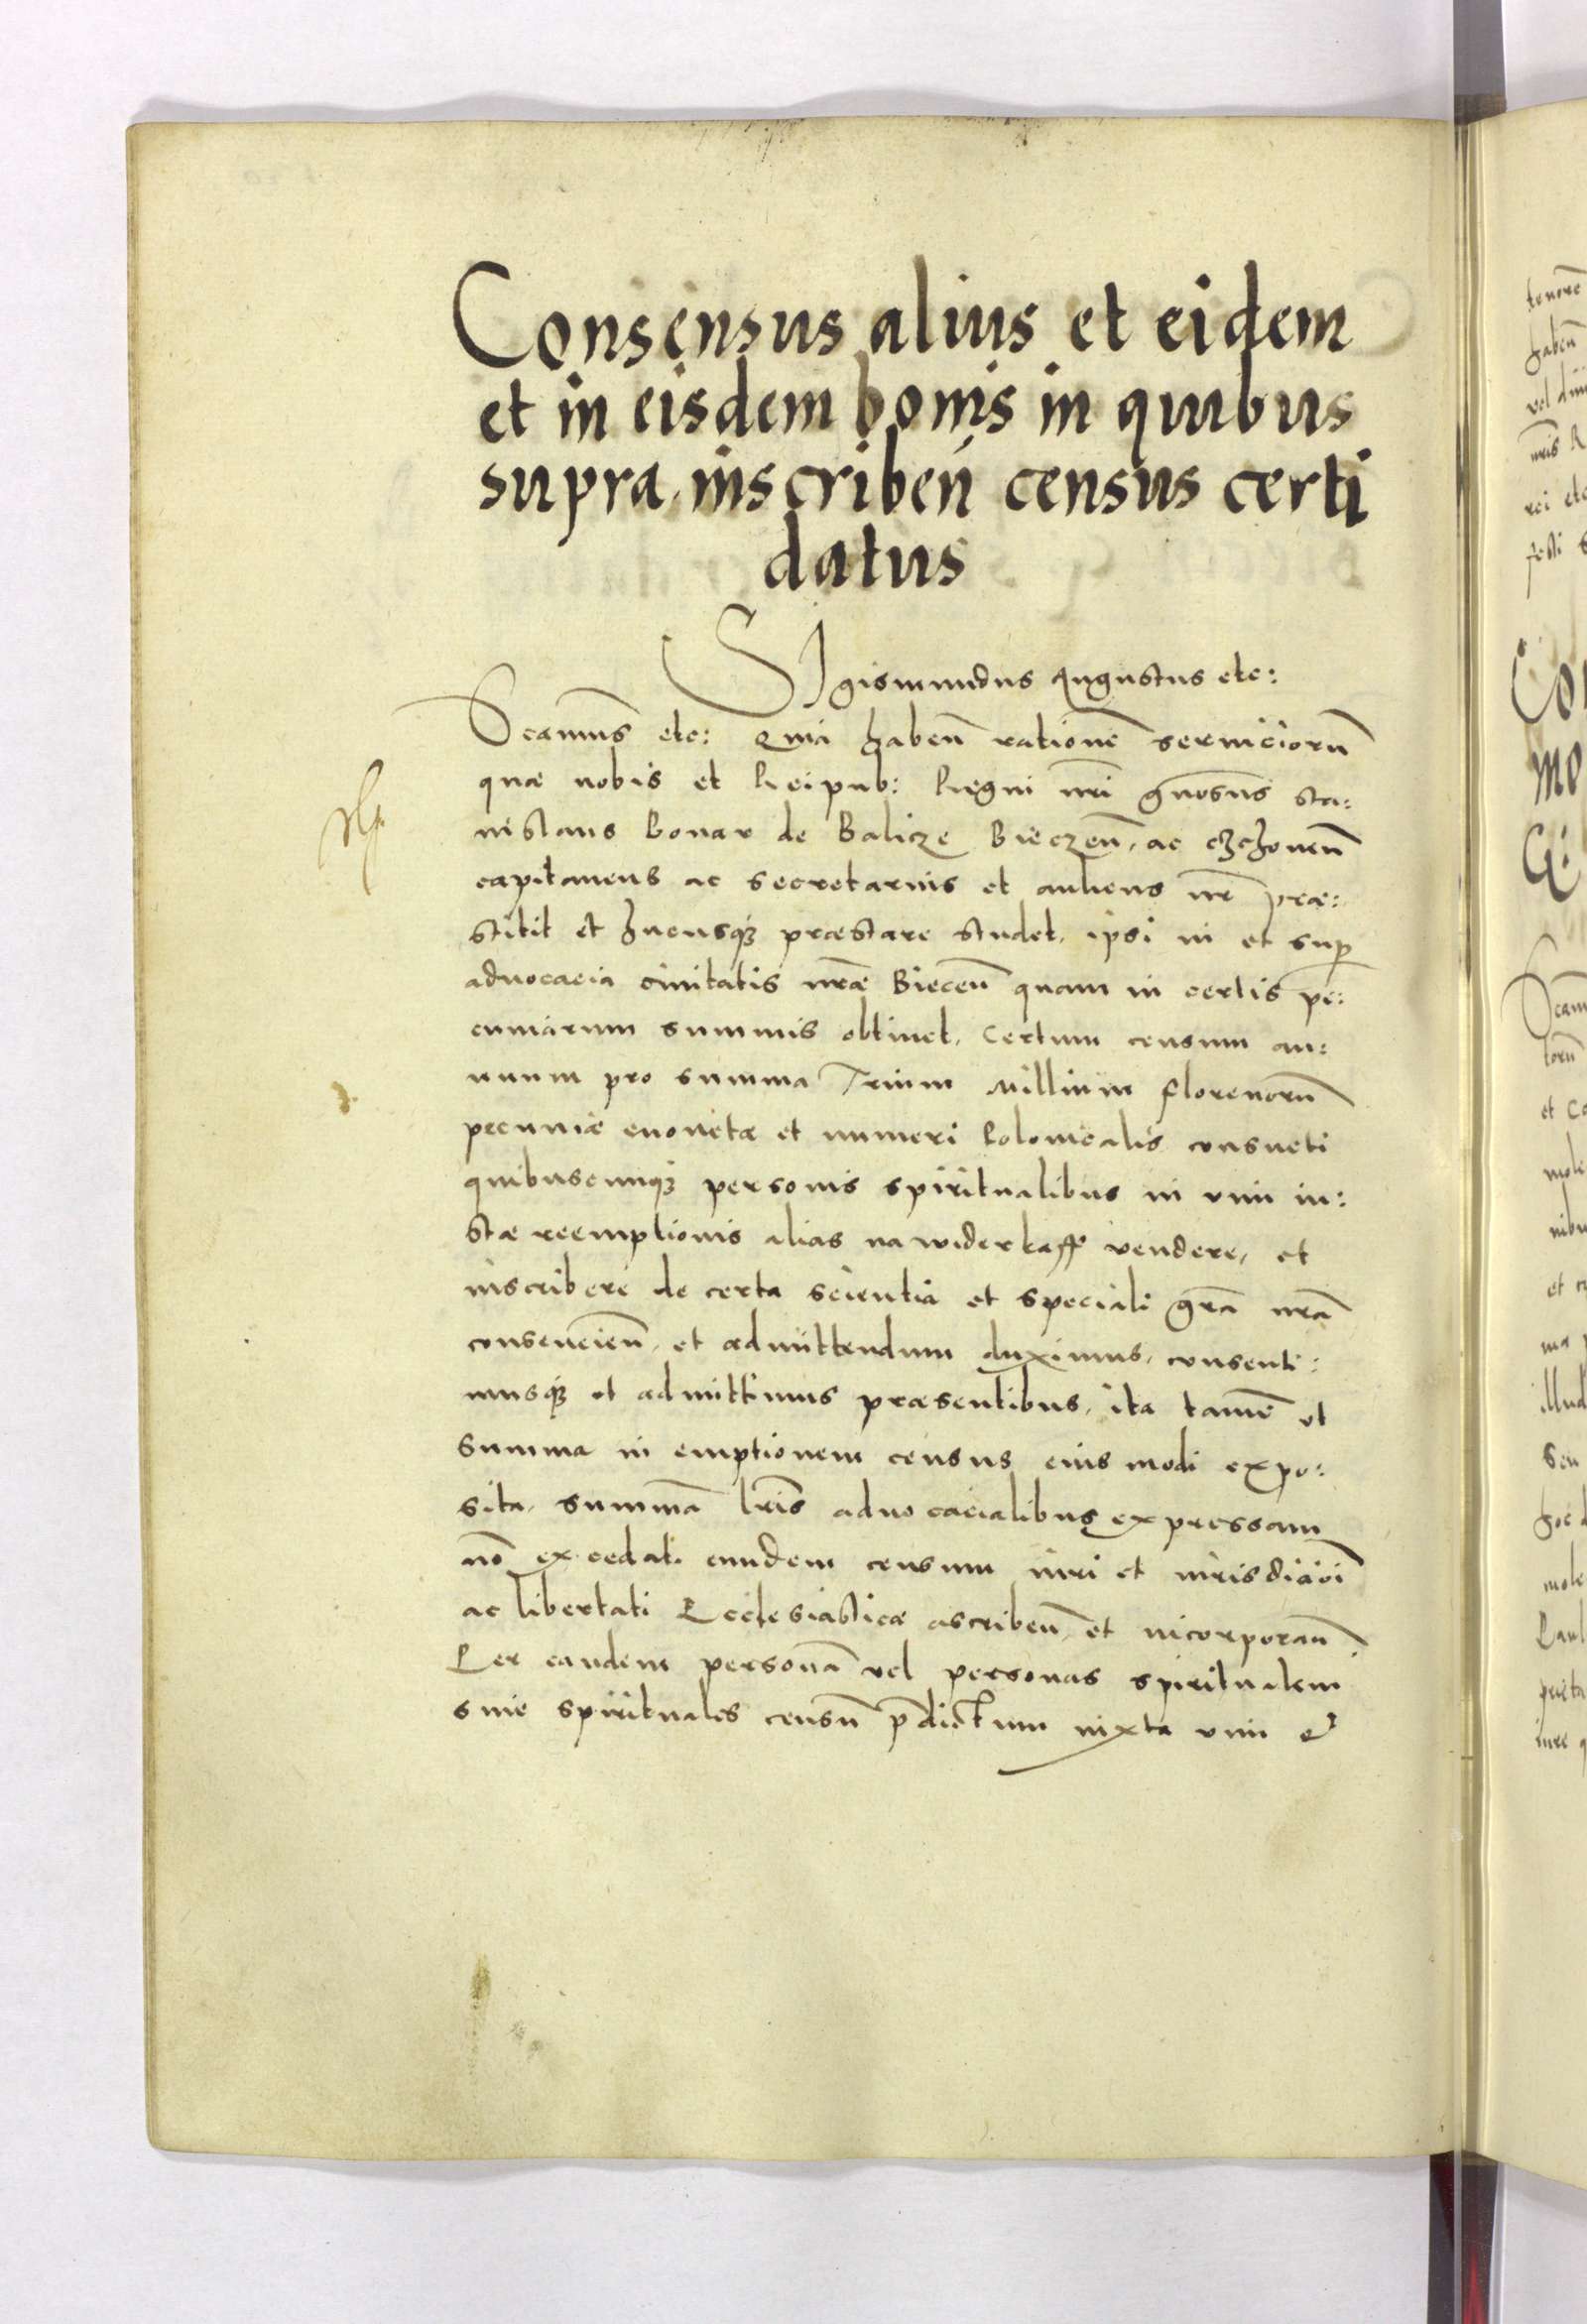 Consensus alius et eidem
et in eisdem bonis in quibus
supra inscribeñ census certi
datus
SIgismundus Augustus etc:
Vcamus̃ etc: Quia habeñ rationẽ seruiciorũ
quæ nobis et Reipub: Regni nr̃i gñosus̃ Sta:
nislaus Bonar de Balicze Bieczeñ, ac Czchoueñ
capitaneus ac secretarius et aulicus nr̃ præ:
stitit et hucusq3 præstare studet, ipsi in et sup
aduocacia ciuitatis nr̃æ Bieceñ quam in certis pe:
cuniarum summis obtinet, certum censum an:
nuum pro summa Trium Millium florenorũ
pecuniæ monetæ et numeri Polonicalis consueti
quibuscunq3 personis spiritualibus in vim iu:
stæ reemptionis alias na widerkaff vendere, et
inscribere de certa scientia et speciali gr̃a nr̃a
consencieñ, et admittendum duximus, consenti:
musq3 et admittimus præsentibus, ita tamẽ vt
summa in emptionem census eius modi expo:
sita, summã lr̃is aduocacialibus expressam
nõ excedat. eundem censum iuri et iurisdicioĩ
ac libertati Ecclesiasticæ ascribeñ, et incorporañ
Per eandem personã vel personas spiritualem
siue spirituales censũ p̃dictum iuxta vim et